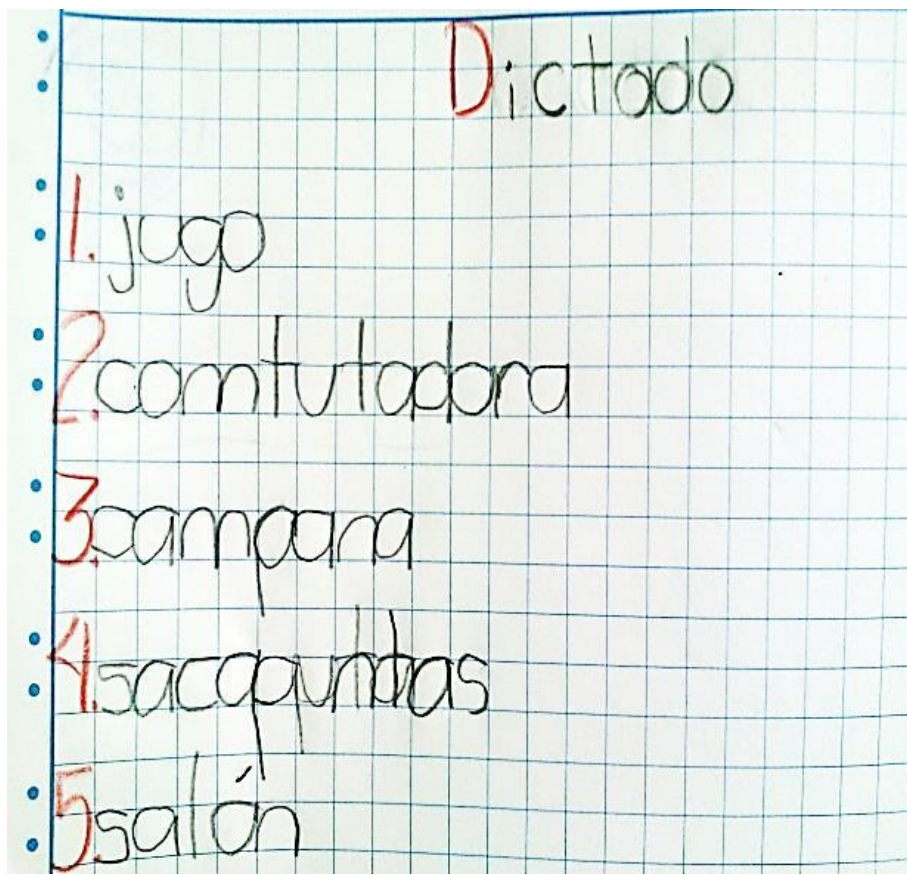 Dictado
1. jugo
2. comtutadora
3. campana
4. sacapuntas
5. salón